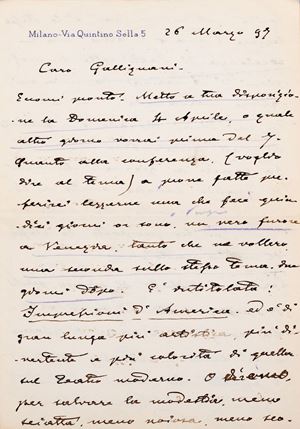 Milano - Via Quintino Sella 5
26 Marzo 97
Caro Gallignani -
Eccomi pronto. Metto a tua disposizio-
ne la Domenica 4 Aprile, o qual
altro giorno vorrai prima del 7.
Quanto alla conferenza, (voglio
dire al tema) a fatto pre-
ferirei leggerne una che feci quin-
dici giorni or sono, un vero furore
a Venezia, tanto che ne vollero
una seconda sullo stesso tema due
giorni dopo. È intitolata:
Impressioni d'America. ed è di
gran lunga più artistica, più di-
vertente e più colorita di quella
sul Teatro moderno. O
per salvare la modestia, meno
seccata, meno noiosa, meno sco-